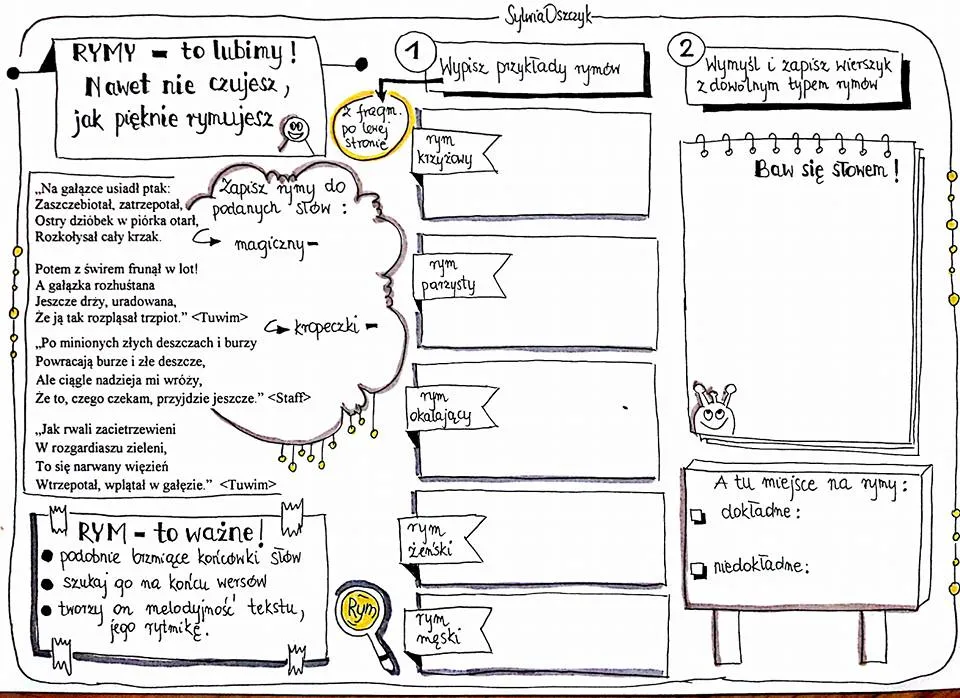 Sylwia Oszczyk
RYMY - to lubimy!
Nawet nie czujesz,
jak pięknie rymujesz
1
Wypisz przykłady rymów
z fragm.
po lewej
stronie
2
Wymyśl i zapisz wierszyk
z dowolnym typem rymów
„Na gałązce usiadł ptak:
Zaszczebiotał, zatrzepotał,
Ostry dzióbek w piórka otarł,
Rozkołysał cały krzak.
Potem z świrem frunął w lot!
A gałązka rozhuśtana
Jeszcze drży, uradowana,
Że ją tak rozpląsał trzpiot.” <Tuwim>
„Po minionych złych deszczach i burzy
Powracają burze i złe deszcze,
Ale ciągle nadzieja mi wróży,
Że to, czego czekam, przyjdzie jeszcze.” <Staff>
„Jak rwali zacietrzewieni
W rozgardiaszu zieleni,
To się narwany więzień
Wtrzepotał, wplątał w gałęzie.” <Tuwim>
Zapisz rymy do
podanych słów:
magiczny-
kropeczki -
rym
krzyżowy
rym
parzysty
rym
okalający
rym
żeński
rym
męski
Baw się słowem!
A tu miejsce na rymy:
dokładne:
niedokładne:
RYM - to ważne!
podobnie brzmiące końcówki słów
szukaj go na końcu wersów
tworzy on melodyjność tekstu,
jego rytmikę.
Rym